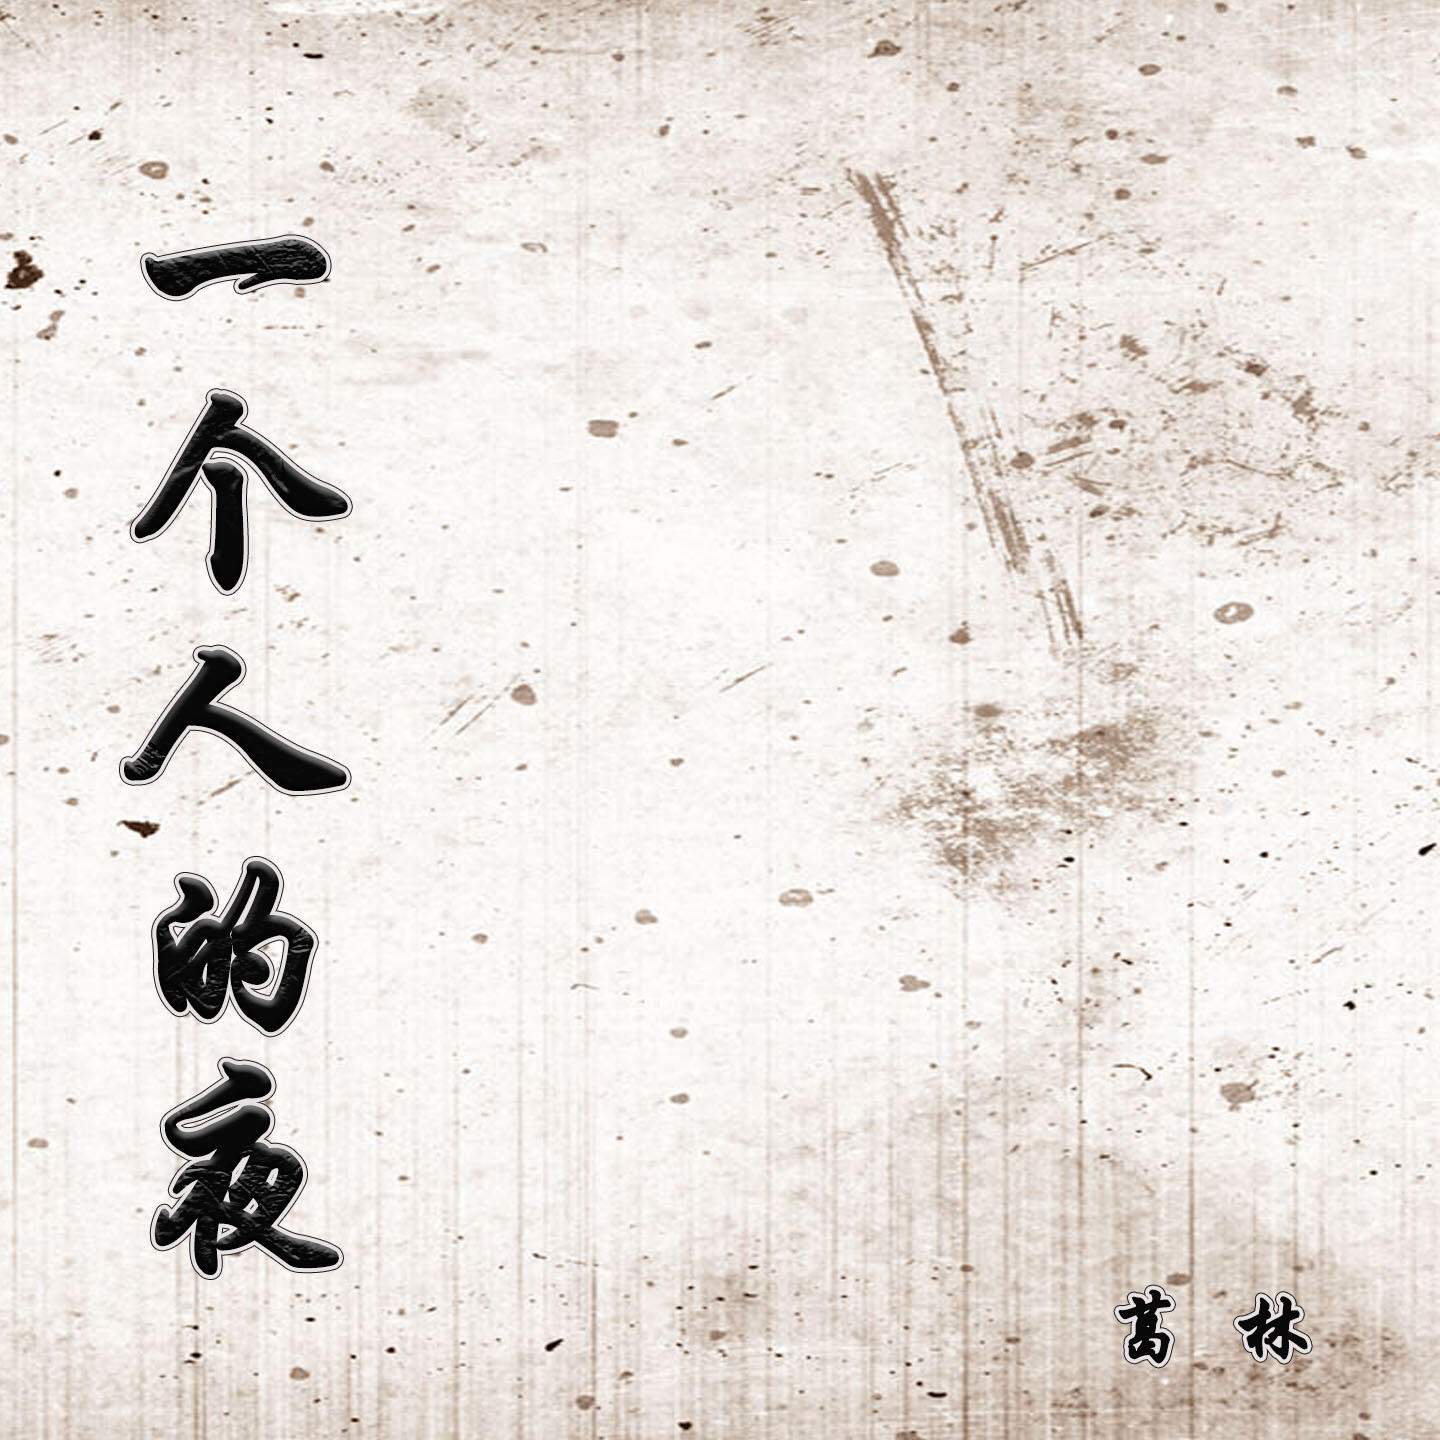 一个人的夜
葛林